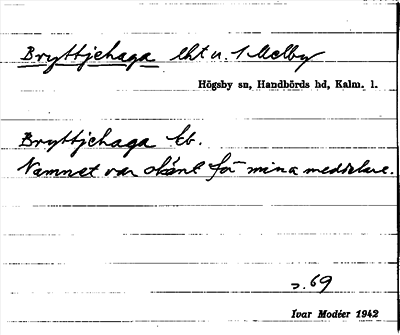 Bryttjehaga lht u. 1 Melby
Högsby sn, Handbörds hd, Kalm. l.
Bryttjehaga Eb.
Namnet var okänt för mina meddelare.
s. 69
Ivar Modéer 1942